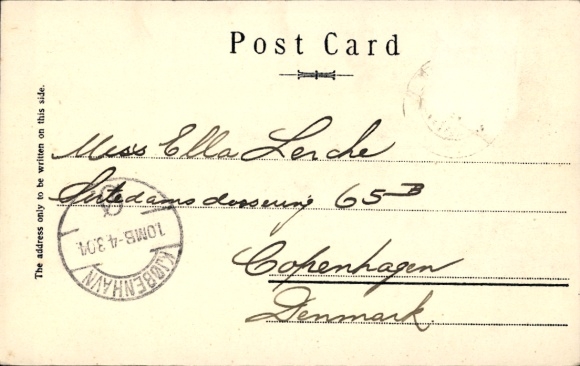 Post Card
The address only to be written on this side.
Miss Ella Lerche
Sortedamsdossering 65 B
Copenhagen
Denmark.
KJØBENHAVN
1.OMB. 4.3.04.